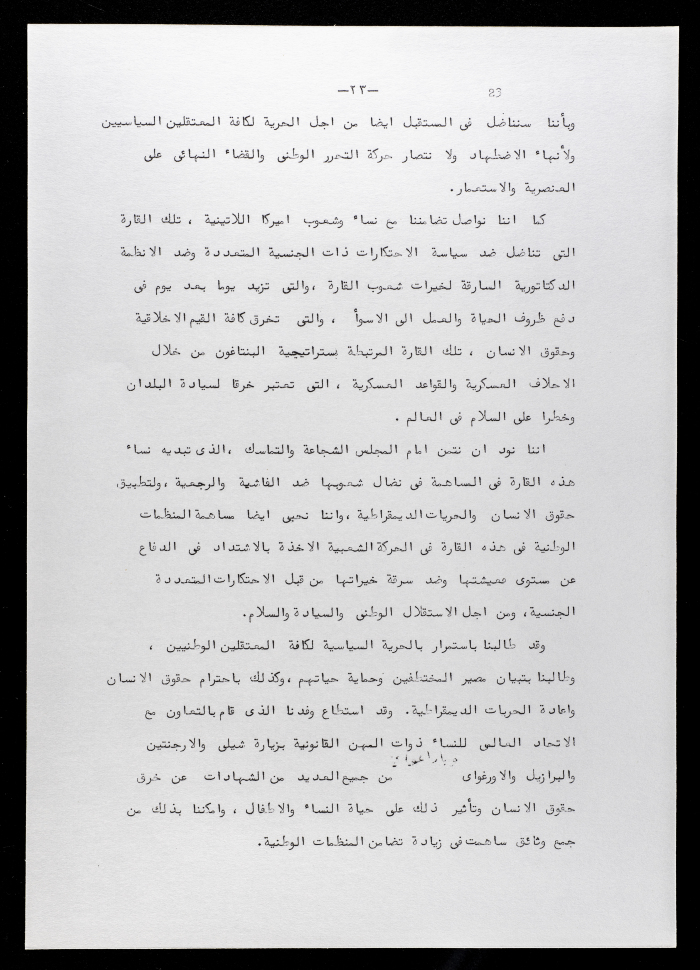 —٢٣— 23
وبأننا سنناضل فى المستقبل ايضا من اجل الحرية لكافة المعتقلين السياسيين
ولأنهاء الاضطهاد ولا نتصار حركة التحرر الوطنى والقضاء النهائى على
العنصرية والاستعمار.
كما اننا نواصل تضامننا مع نساء وشعوب اميركا اللاتينية ، تلك القارة
التى تناضل ضد سياسة الاحتكارات ذات الجنسية المتعددة وضد الانظمة
الدكتاتورية السارقة لخيرات شعوب القارة ،والتى تزيد يوما بعد يوم فى
دفع ظروف الحياة والعمل الى الاسوأ ، والتى تخرق كافة القيم الاخلاقية
وحقوق الانسان ، تلك القارة المرتبطة بستراتيجية البنتاغون من خلال
الاحلاف العسكرية والقواعد العسكرية ، التى تعتبر خرقا لسيادة البلدان
وخطرا على السلام فى العالم .
اننا نود ان نثمن امام المجلس الشجاعة والتماسك ،الذى تبديه نساء
هذه القارة فى المساهمة فى نضال شعوبها ضد الفاشية والرجعية ،ولتطبيق
حقوق الانسان والحريات الديمقراطية ،واننا نحيى ايضا مساهمة المنظمات
الوطنية فى هذه القارة فى الحركة الشعبية الاخذة بالاشتداد فى الدفاع
عن مستوى معيشتها وضد سرقة خيراتها من قبل الاحتكارات المتعددة
الجنسية، ومن اجل الاستقلال الوطنى والسيادة والسلام.
وقد طالبنا باستمرار بالحرية السياسية لكافة المعتقلين الوطنيين ،
وطالبنا بتبيان مصير المختطفين وحماية حياتهم ،وكذلك باحترام حقوق الانسان
واعادة الحريات الديمقراطية. وقد استطاع وفدنا الذى قام بالتعاون مع
الاتحاد العالمى للنساء ذوات المهن القانونية بزيارة شيلى والارجنتين
والبرازيل والاورغواى من جميع العديد من الشهادات عن خرق
حقوق الانسان وتأثير ذلك على حياة النساء والاطفال ، وامكننا بذلك من
جمع وثائق ساهمت فى زيادة تضامن المنظمات الوطنية.